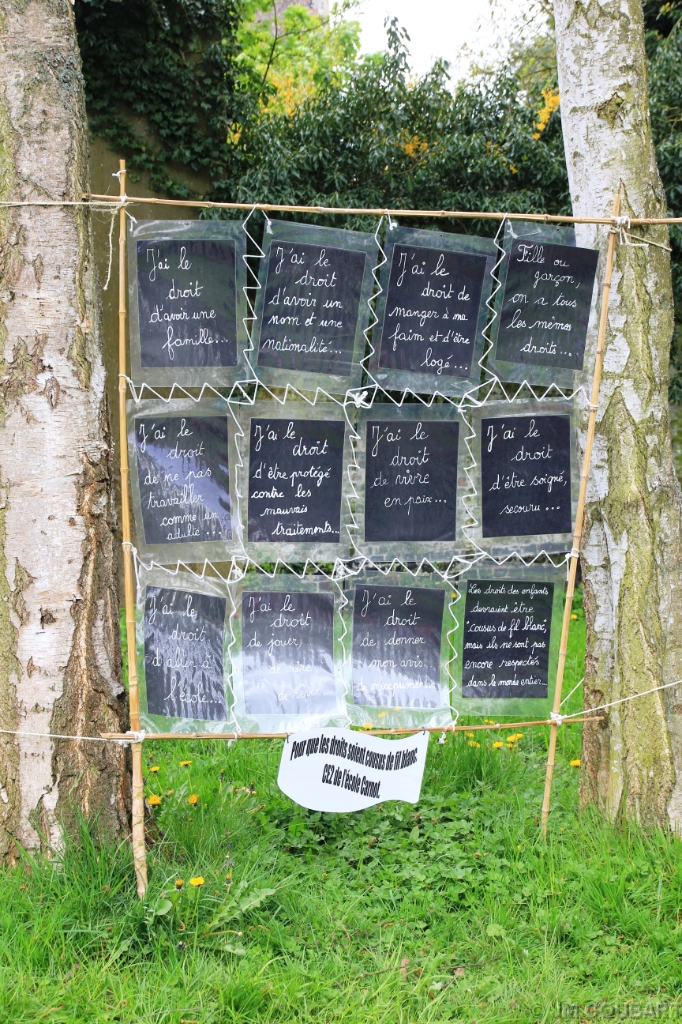 J'ai le
droit
d'avoir une
famille...
J'ai le
droit
d'avoir un
nom et une
nationalité...
J'ai le
droit de
manger à ma
faim et d'être
logé...
Fille ou
garçon,
on a tous
les mêmes
droits...
J'ai le
droit
de ne pas
travailler
comme un
adulte...
J'ai le
droit
d'être protégé
contre les
mauvais
traitements...
J'ai le
droit
de vivre
en paix...
J'ai le
droit
d'être soigné,
secouru...
J'ai le
droit
d'aller à
l'école...
J'ai le
droit
de jouer,
de rire,
de rêver...
J'ai le
droit
de donner
mon avis,
Les droits des enfants
devraient être
"cousus de fil blanc",
mais ils ne sont pas
encore respectés
dans le monde entier...
Pour que les droits soient cousus de fil blanc.
CE2 de l'école Carnot.